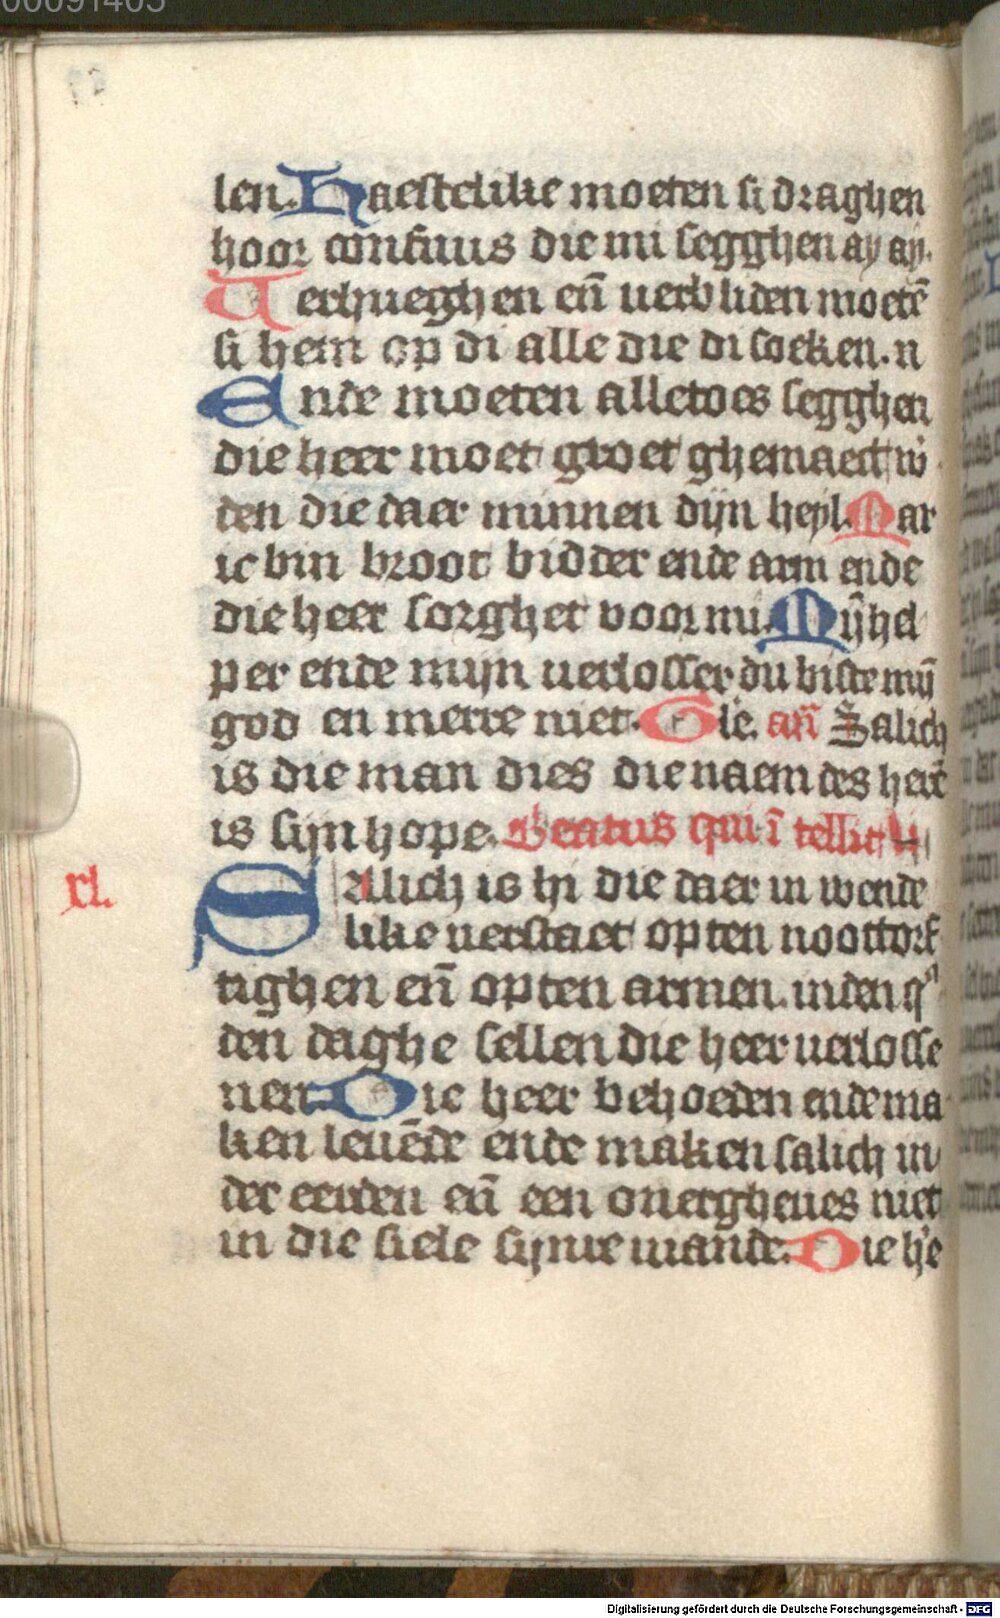 00091405
len. Haestelike moeten si draghen
hoor confuus die mi segghen ay ay.
Verhueghen eñ verbliden moetē
si hem op di alle die di soeken. n
Ende moeten alletoes segghen
die heer moet groet ghemaect w̄
den die daer minnen dijn heyl. Mar
ic bin broot bidder ende arm ende
die heer sorghet voor mi. Mȳ hel
per ende mijn verlosser du biste mȳ
god en merre niet. Gle. añ Salich
is die man dies die naem des herē
is sijn hope. Beatus qui ītellit
xl.
Salich is hi die daer in wende
like verstaet op ten noottorf
tighen eñ op ten armen. in den q
den daghe sellen die heer verlosse
nen. Die heer behoeden ende ma
ken levēde ende maken salich in
der eerden eñ een overgheues niet
in die siele sijnre viande. Die he
Digitalisierung gefördert durch die Deutsche Forschungsgemeinschaft - DFG